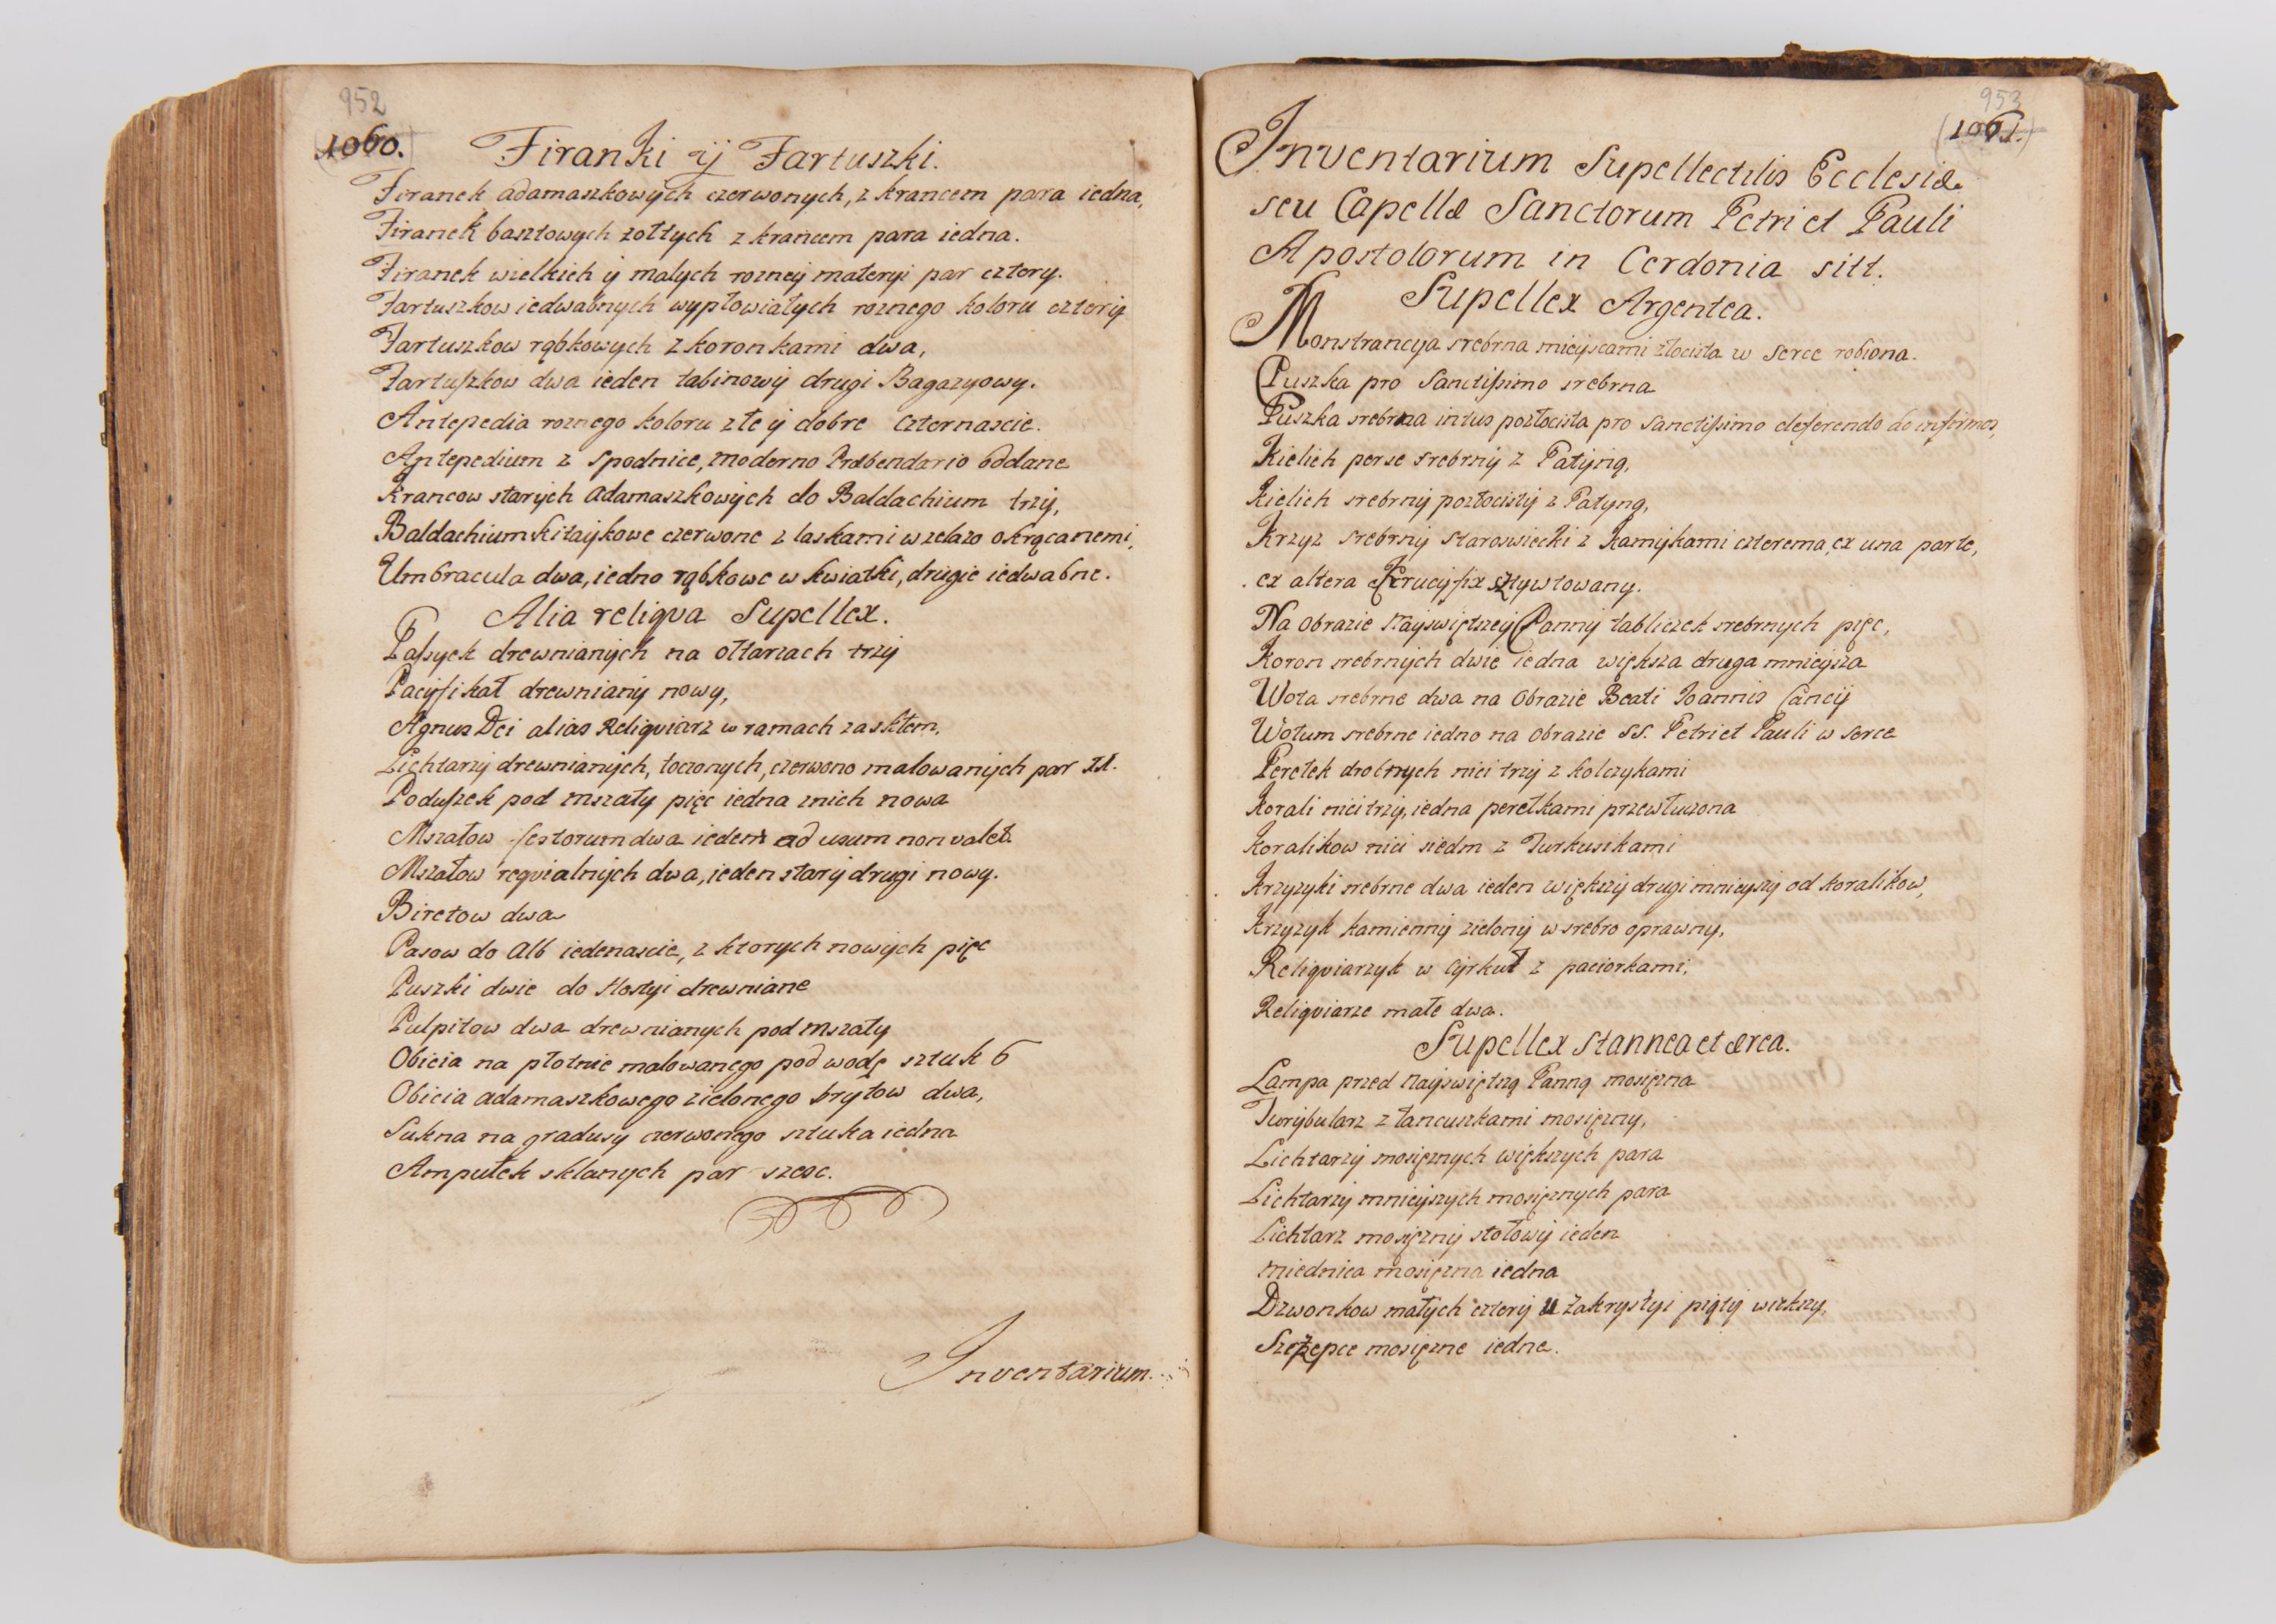 952
1060.
Firanki ÿ Fartuszki.
Firanek adamaszkowych czerwonych, z krancem para iedna,
Firanek basztowych zołtych z krancem para iedna.
Firanek wielkich ÿ malych rozneÿ materyi par cztery.
Fartuszkow iedwabnych wypłowiałych roznego koloru czterÿ
Fartuszkow rąbkowych z koronkami dwa,
Fartuszkow dwa ieden tabinowÿ drugi Bagazyowy.
Antepedia roznego koloru złe ÿ dobre czternascie.
Antepedium z spodnice, moderno Præbendario oddane
Krancow starÿch adamaszkowÿch do Baldachium trzÿ,
Baldachium kitaÿkowe czerwone z laskami w zelazo okrącanemi,
Umbracula dwa, iedno rąbkowe w kwiatki, drugie iedwabne.
Alia reliqva Supellex.
Passyek drewnianÿch na ołtarzach trzÿ
Pacÿfikał drewnianÿ nowy,
Agnus Dei alias Reliqviarz w ramach za szkłem,
Lichtarzÿ drewnianÿch, toczonych, czerwono malowanÿch par XI.
Poduszek pod mszały pięc iedna znich nowa
Mszałow festorum dwa ieden ad usum non valet.
Mszałow reqvialnÿch dwa, ieden starÿ drugi nowy.
Biretow dwa
Pasow do Alb iedenascie, z ktorych nowÿch pięc
Puszki dwie do Hostyi drewniane
Pulpitow dwa drewnianych pod mszały
Obicia na płotnie malowanego pod wodę sztuk 6
Obicia adamaszkowego zielonego brytow dwa,
Sukna na gradusy czerwonego sztuka iedna
Ampułek sklanych par szesc.
Inventarium.
953
(1061.)
Inventarium Supellectilis Ecclesiæ
seu Capellæ Sanctorum Petri et Pauli
Apostolorum in Cerdonia sitt.
Supellex Argentea.
Monstrancÿa srebrna mieÿscami złocista w serce robiona.
Puszka pro Sanctissimo srebrna
Puszka srebrna intus pozłocista pro Sanctissimo deferendo ad infirmos,
Kielich per se srebrnÿ z Patÿną,
Kielich srebrnÿ pozłocistÿ z Patyną,
Krzyz srebrnÿ staroswiecki z kamÿkami czterema, ex una parte,
ex altera Krucyfix sztywtowany.
Na obrazie Naÿswiętszeÿ Pannÿ tabliczek srebrnych pięc,
Koron srebrnÿch dwie iedna większa druga mnieÿsza
Wota srebrne dwa na Obrazie Beati Ioannis Cancÿ
Wotum srebrne iedno na obrazie SS. Petri et Pauli w serce
Perełek drobnych nici trzÿ z kolczykami
Korali nici trzÿ, iedna perełkami przewłuczona
Koralikow nici siedm z Turkusikami
Krzyzyki srebrne dwa ieden większÿ drugi mnieyszÿ od koralikow,
Krzyzyk kamiennÿ zielonÿ w srebro oprawny,
Reliqviarzyk w Cÿrkuł z paciorkami,
Reliqviarze małe dwa.
Supellex Stannea et ærea.
Lampa przed Naÿswiętszą Panną mosięzna
Turÿbularz z łancuszkami mosięzny,
Lichtarzÿ mosięznych większych para
Lichtarzÿ mnieÿszych mosięznych para
Lichtarz mosięznÿ stołowÿ ieden
miednica mosięzna iedna
Dzwonkow małÿch czterÿ u Zakrystyi piątÿ większy,
Szczepce mosięzne iedne.